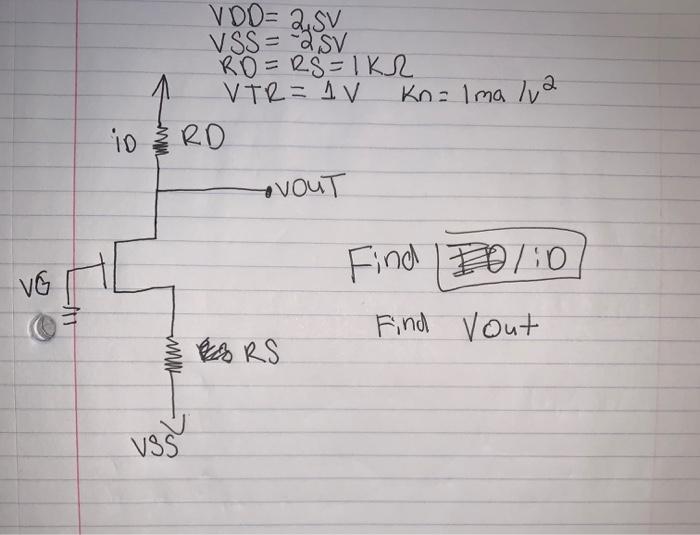 VDD= 2.5V
VSS = -2.5V
RD = RS = 1KΩ
VTR = 1V Kn = 1ma/v²
iD RD
VOUT
VG
Find /iD
Find Vout
RS
VSS